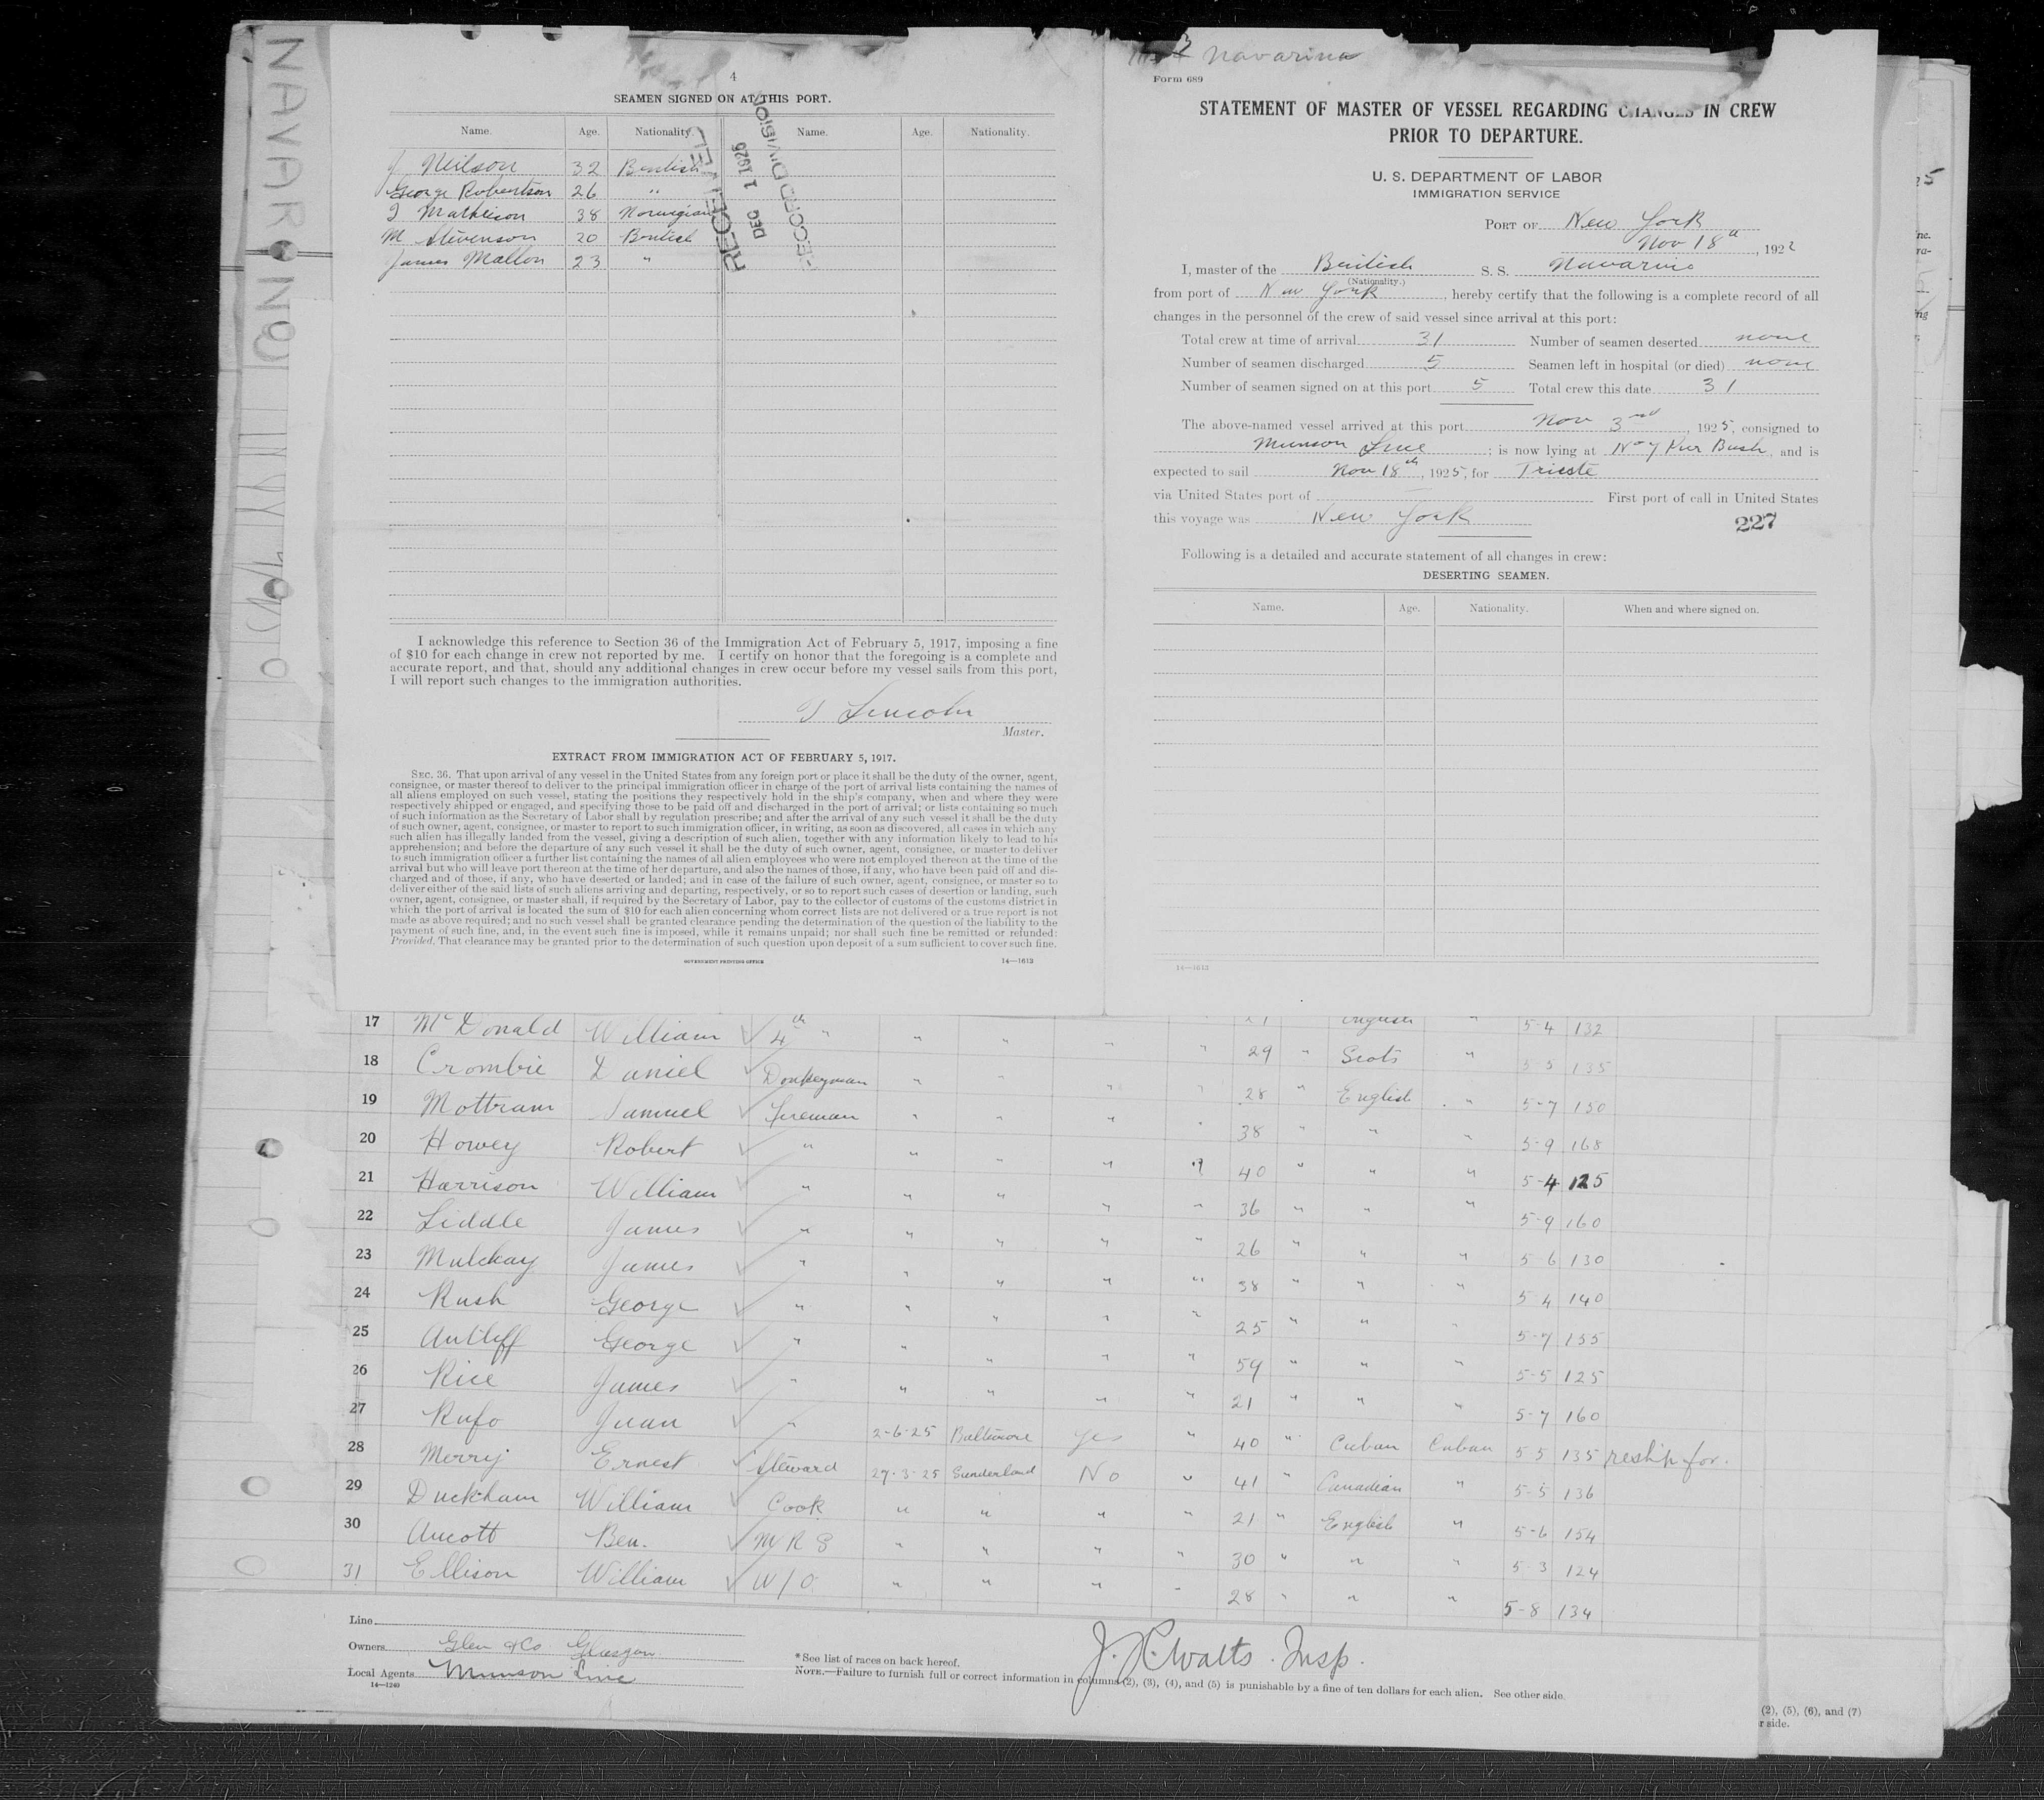 NAVARINO
4
SEAMEN SIGNED ON AT THIS PORT.
Name. Age. Nationality. Name. Age. Nationality.
J Neilson 32 British
George Robertson 26 "
J Mathieson 38 Norwegian
M Stevenson 20 British
James Mallon 23 "
RECEIVED
DEC 1 1925
RECORD DIVISION
I acknowledge this reference to Section 36 of the Immigration Act of February 5, 1917, imposing a fine
of $10 for each change in crew not reported by me. I certify on honor that the foregoing is a complete and
accurate report, and that, should any additional changes in crew occur before my vessel sails from this port,
I will report such changes to the immigration authorities.
Lincoln
Master.
EXTRACT FROM IMMIGRATION ACT OF FEBRUARY 5, 1917.
SEC. 36. That upon arrival of any vessel in the United States from any foreign port or place it shall be the duty of the owner, agent,
consignee, or master thereof to deliver to the principal immigration officer in charge of the port of arrival lists containing the names of
all aliens employed on such vessel, stating the positions they respectively hold in the ship's company, when and where they were
respectively shipped or engaged, and specifying those to be paid off and discharged in the port of arrival; or lists containing so much
of such information as the Secretary of Labor shall by regulation prescribe; and after the arrival of any such vessel it shall be the duty
of such owner, agent, consignee, or master to report to such immigration officer, in writing, as soon as discovered, all cases in which any
such alien has illegally landed from the vessel, giving a description of such alien, together with any information likely to lead to his
apprehension; and before the departure of any such vessel it shall be the duty of such owner, agent, consignee, or master to deliver
to such immigration officer a further list containing the names of all alien employees who were not employed thereon at the time of the
arrival but who will leave port thereon at the time of her departure, and also the names of those, if any, who have been paid off and dis-
charged and of those, if any, who have deserted or landed; and in case of the failure of such owner, agent, consignee, or master so to
deliver either of the said lists of such aliens arriving and departing, respectively, or so to report such cases of desertion or landing, such
owner, agent, consignee, or master shall, if required by the Secretary of Labor, pay to the collector of customs of the customs district in
which the port of arrival is located the sum of $10 for each alien concerning whom correct lists are not delivered or a true report is not
made as above required; and no such vessel shall be granted clearance pending the determination of the question of the liability to the
payment of such fine, and, in the event such fine is imposed, while it remains unpaid; nor shall such fine be remitted or refunded:
Provided, That clearance may be granted prior to the determination of such question upon deposit of a sum sufficient to cover such fine.
GOVERNMENT PRINTING OFFICE 14—1613
Navarino
Form 689
STATEMENT OF MASTER OF VESSEL REGARDING CHANGES IN CREW
PRIOR TO DEPARTURE.
U. S. DEPARTMENT OF LABOR
IMMIGRATION SERVICE
PORT OF New York
Nov 18th, 1922
I, master of the British S. S. Navarino
(Nationality.)
from port of New York, hereby certify that the following is a complete record of all
changes in the personnel of the crew of said vessel since arrival at this port:
Total crew at time of arrival 31 Number of seamen deserted none
Number of seamen discharged 5 Seamen left in hospital (or died) none
Number of seamen signed on at this port 5 Total crew this date 31
The above-named vessel arrived at this port Nov 3rd, 1925, consigned to
Munson Line; is now lying at No 7 Pier Bush, and is
expected to sail Nov 18th, 1925, for Trieste
via United States port of — First port of call in United States
this voyage was New York
227
Following is a detailed and accurate statement of all changes in crew:
DESERTING SEAMEN.
Name. Age. Nationality. When and where signed on.
14—1613
17 McDonald William 4th " " " " " 29 " Scots " 5-4 132
18 Crombie Daniel Donkeyman " " " " 28 " English " 5-5 135
19 Mottram Samuel Fireman " " " " 38 " " " 5-7 150
20 Howey Robert " " " " " 40 " " " 5-9 168
21 Harrison William " " " " " 36 " " " 5-4 125
22 Liddle James " " " " " 26 " " " 5-9 160
23 Mulckay James " " " " " 38 " " " 5-6 130
24 Rush George " " " " " 25 " " " 5-4 140
25 Antliff George " " " " " 59 " " " 5-7 155
26 Rice James " " " " " 21 " " " 5-5 125
27 Rufo Juan " 2-6-25 Baltimore Yes " 40 " Cuban Cuban 5-7 160
28 Merry Ernest Steward 27-3-25 Sunderland No " 41 " Canadian " 5-5 135 reship for.
29 Duckham William Cook " " " " 21 " English " 5-5 136
30 Aucott Ben. M R S " " " " 30 " " " 5-6 154
31 Ellison William W/O " " " " 28 " " " 5-3 124
5-8 134
Line
Owners Glen & Co Glasgow
Local Agents Munson Line
14—1240
* See list of races on back hereof.
J. Watts. Insp.
NOTE.—Failure to furnish full or correct information in columns (2), (3), (4), and (5) is punishable by a fine of ten dollars for each alien. See other side.
(2), (5), (6), and (7)
r side.